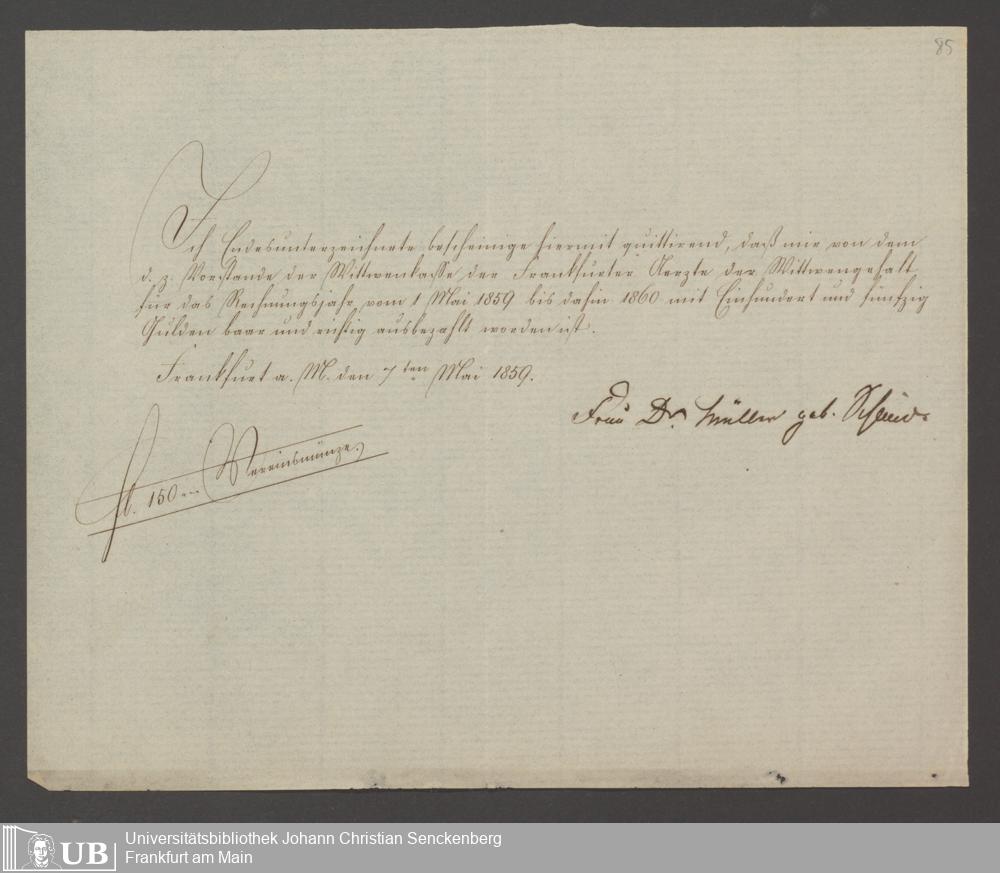 85
Ich Endesunterzeichnete bescheinige hiermit quittirend, daß mir von dem
d. z. Vorstande der Wittwenkasse der Frankfurter Aerzte der Wittwengehalt
für das Rechnungsjahr vom 1 Mai 1859 bis dahin 1860 mit Einhundert und fünfzig
Gulden baar und richtig ausbezahlt worden ist.
Frankfurt a. M. den 7ten Mai 1859.
Frau Dr. Müller geb.
fl. 150 — (Vereinsmünze.)
UB
Universitätsbibliothek Johann Christian Senckenberg
Frankfurt am Main